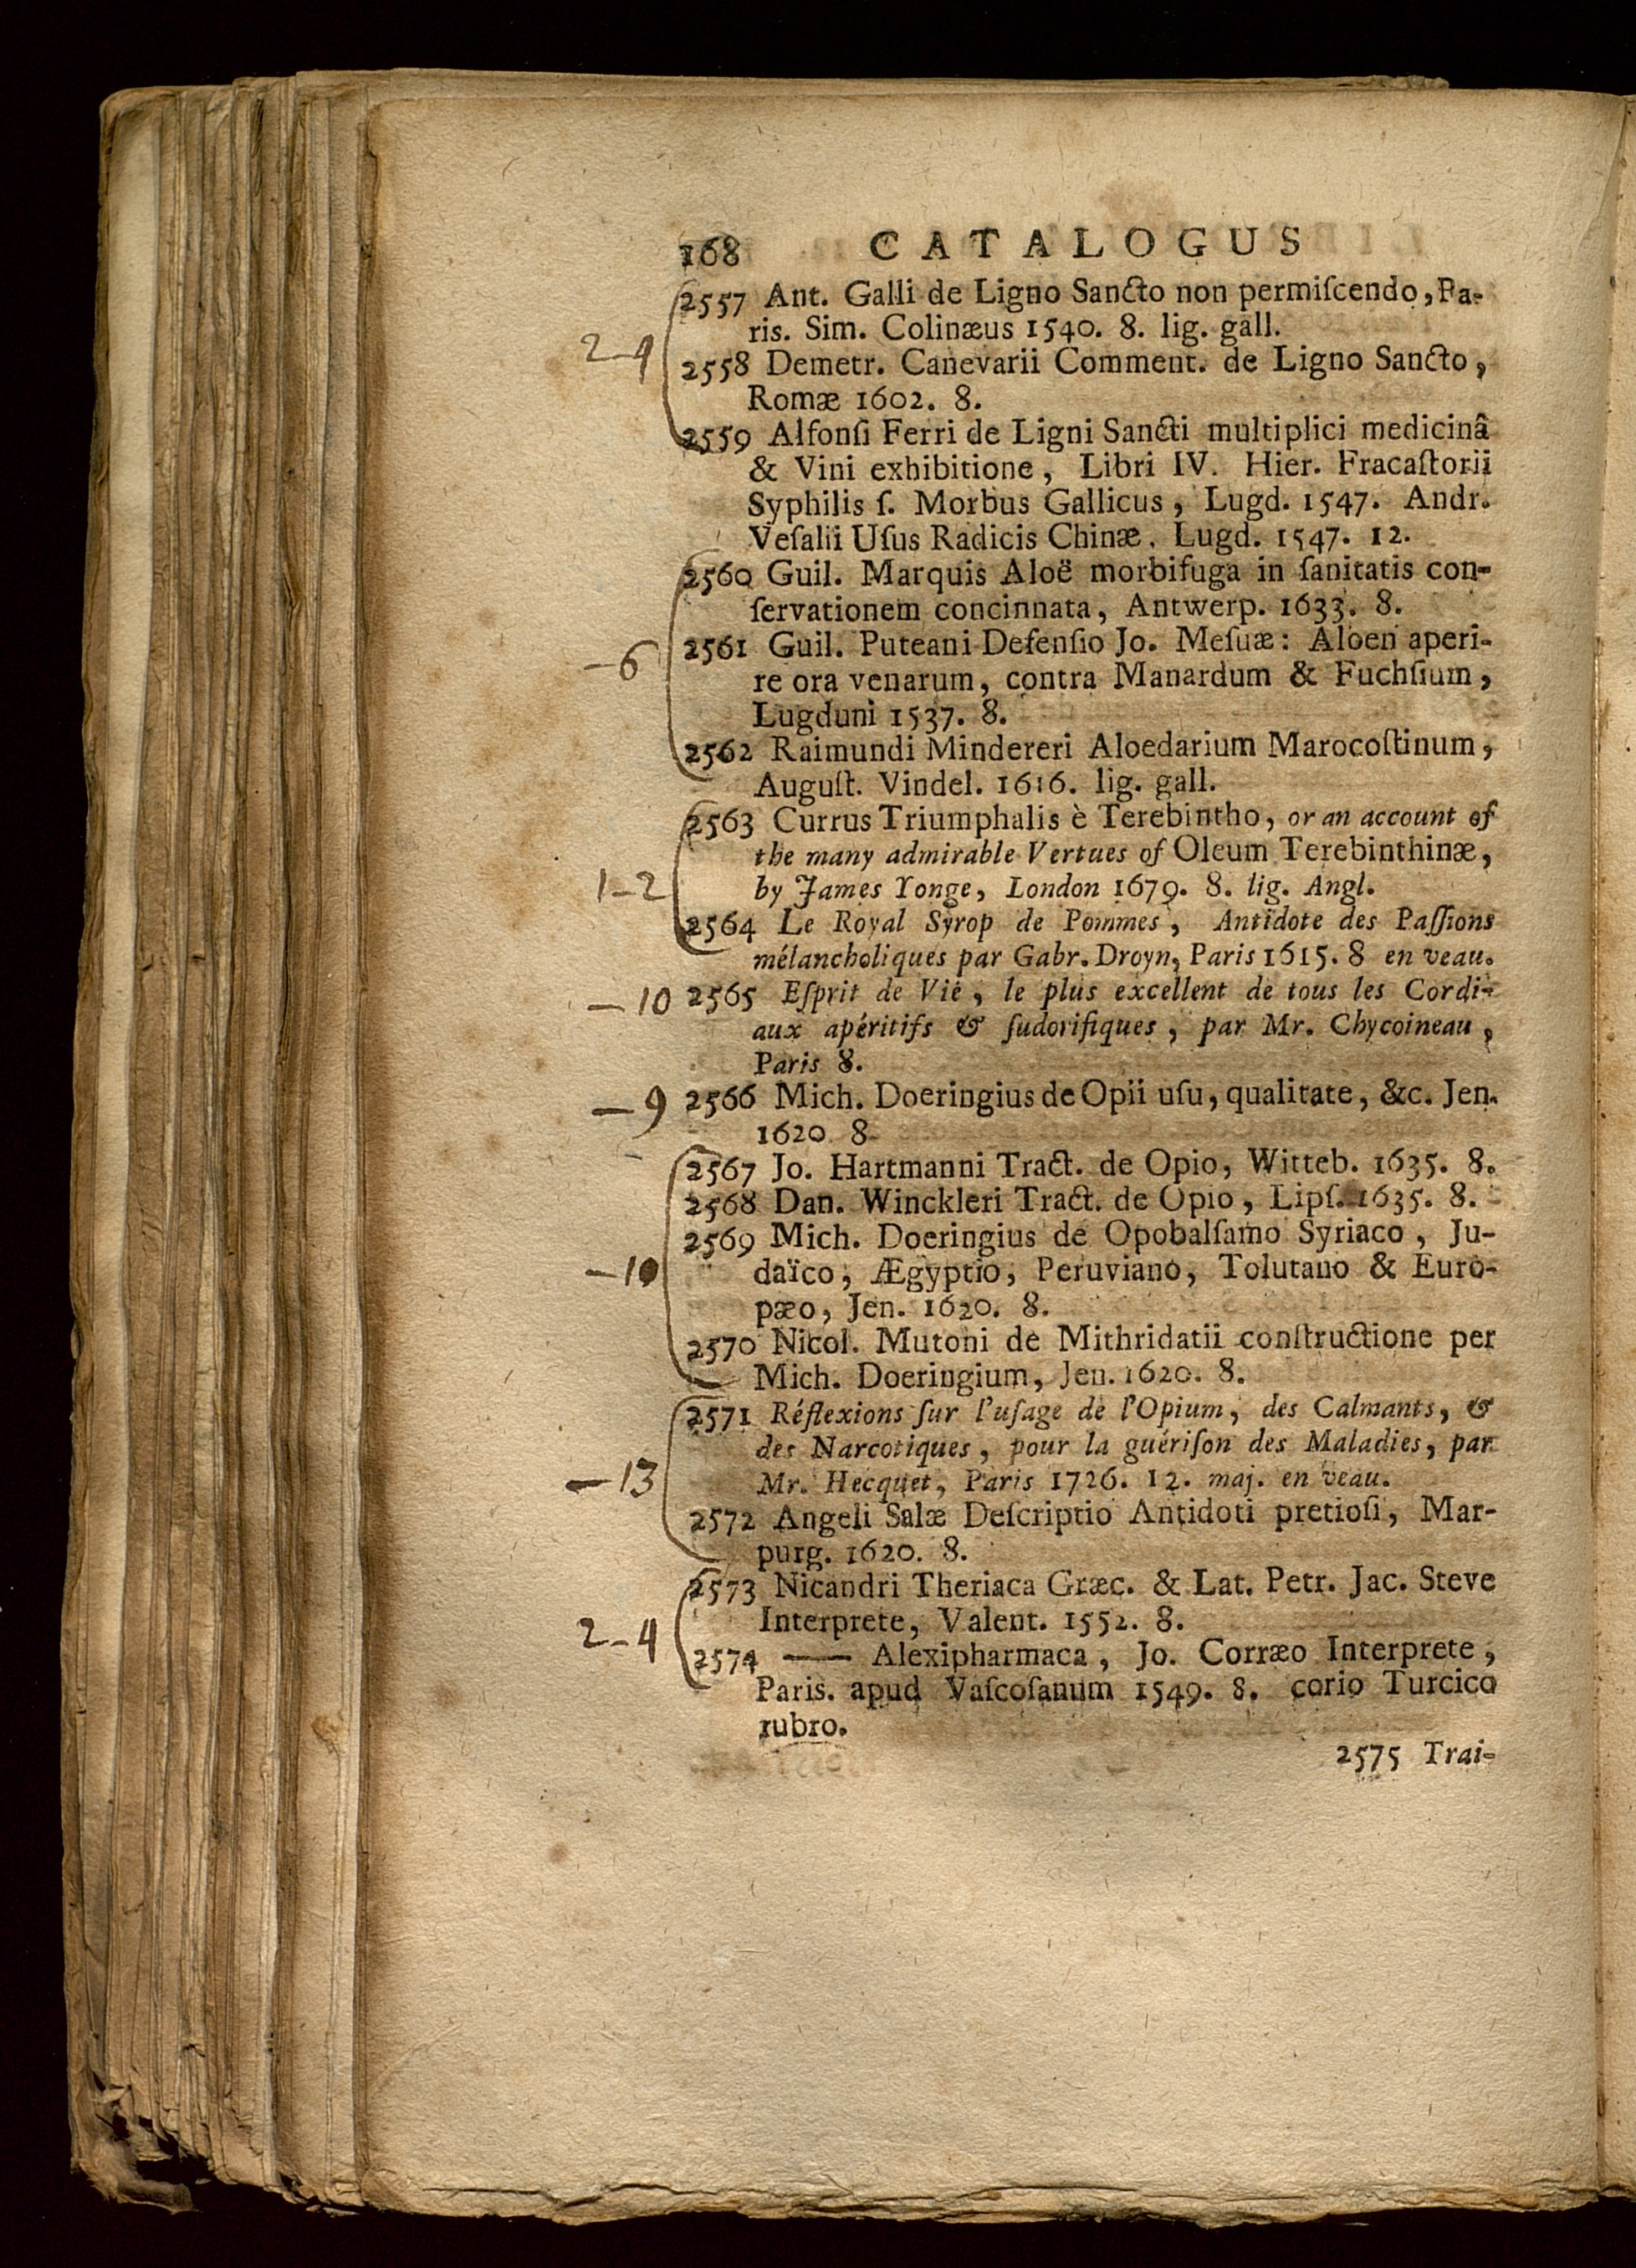 168 CATALOGUS
2557 Ant. Galli de Ligno Sancto non permiſcendo, Pa-
ris. Sim. Colinæus 1540. 8. lig. gall.
2-4
2558 Demetr. Canevarii Comment. de Ligno Sancto,
Romæ 1602. 8.
2559 Alfonſi Ferri de Ligni Sancti multiplici medicinâ
& Vini exhibitione, Libri IV. Hier. Fracaſtorii
Syphilis ſ. Morbus Gallicus, Lugd. 1547. Andr.
Veſalii Uſus Radicis Chinæ. Lugd. 1547. 12.
2560 Guil. Marquis Aloë morbifuga in ſanitatis con-
ſervationem concinnata, Antwerp. 1633. 8.
-6
2561 Guil. Puteani Defenſio Jo. Meſuæ: Aloen aperi-
re ora venarum, contra Manardum & Fuchſium,
Lugduni 1537. 8.
2562 Raimundi Mindereri Aloedarium Marocoſtinum,
Auguſt. Vindel. 1616. lig. gall.
2563 Currus Triumphalis è Terebintho, or an account of
the many admirable Vertues of Oleum Terebinthinæ,
1-2
by James Yonge, London 1679. 8. lig. Angl.
2564 Le Royal Syrop de Pommes, Antidote des Paſſions
mélancholiques par Gabr. Droyn, Paris 1615. 8 en veau.
-10
2565 Eſprit de Vie, le plus excellent de tous les Cordi-
aux apéritifs & ſudorifiques, par Mr. Chycoineau,
Paris 8.
-9
2566 Mich. Doeringius de Opii uſu, qualitate, &c. Jen.
1620 8.
2567 Jo. Hartmanni Tract. de Opio, Witteb. 1635. 8.
2568 Dan. Winckleri Tract. de Opio, Lipſ. 1635. 8.
2569 Mich. Doeringius de Opobalſamo Syriaco, Ju-
-10
daïco, Ægyptio, Peruviano, Tolutano & Euro-
pæo, Jen. 1620. 8.
2570 Nicol. Mutoni de Mithridatii conſtructione per
Mich. Doeringium, Jen. 1620. 8.
2571 Réflexions ſur l'uſage de l'Opium, des Calmants, &
des Narcotiques, pour la guériſon des Maladies, par
-13
Mr. Hecquet, Paris 1726. 12. maj. en veau.
2572 Angeli Salæ Deſcriptio Antidoti pretioſi, Mar-
purg. 1620. 8.
2573 Nicandri Theriaca Græc. & Lat. Petr. Jac. Steve
Interprete, Valent. 1552. 8.
2-4
2574 —— Alexipharmaca, Jo. Corræo Interprete,
Paris. apud Vaſcoſanum 1549. 8. corio Turcico
rubro.
2575 Trai-